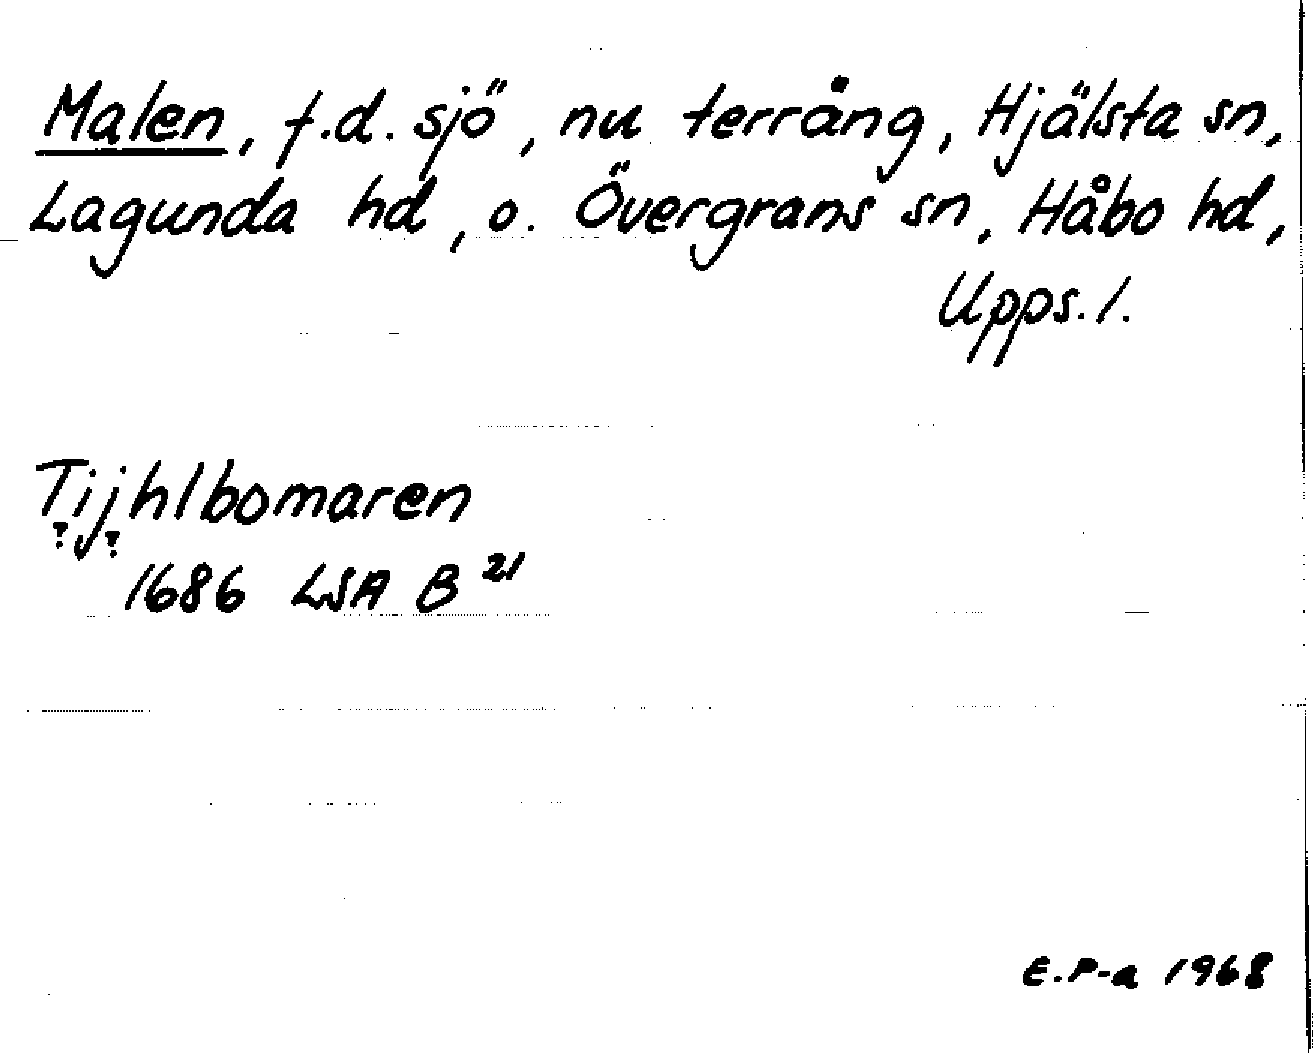 Malen, f.d. sjö, nu terräng, Hjälsta sn,
Lagunda hd, o. Övergrans sn, Håbo hd,
Upps. l.
Tijhlbomaren
? ?
1686 LSA B 21
E.P-a 1968